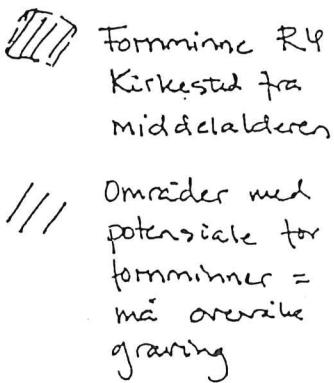 Fornminne R4
Kirkested fra
middelalderen
Områder med
potensiale for
fornminner =
må overvåke
graving